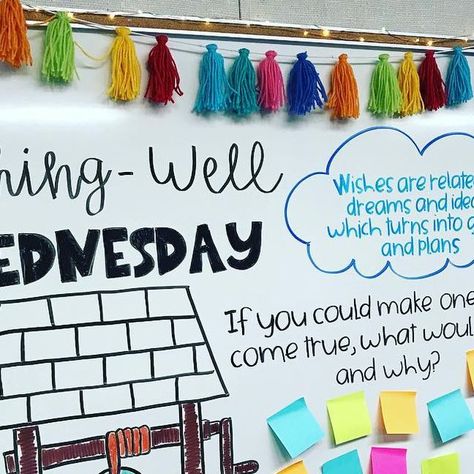 hing-Well
EDNESDAY
Wishes are relate
dreams and idea
which turns into g
and plans
If you could make one
come true, what woul
and why?